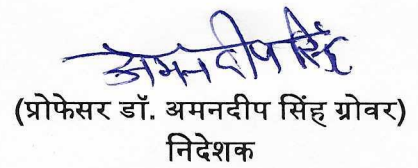 अमनदीप सिंह
(प्रोफेसर डॉ. अमनदीप सिंह ग्रोवर)
निदेशक